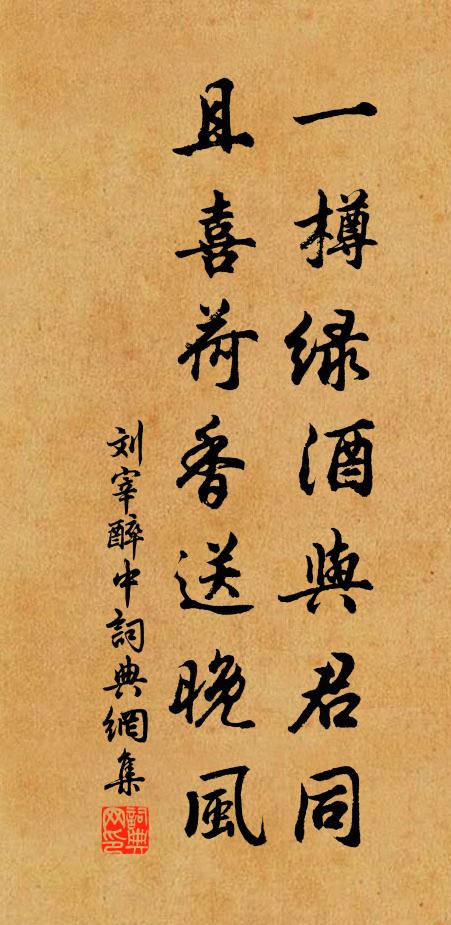 一樽绿酒與君同
且喜荷香送晚風
刘宰醉中詞典網集
詞典网印